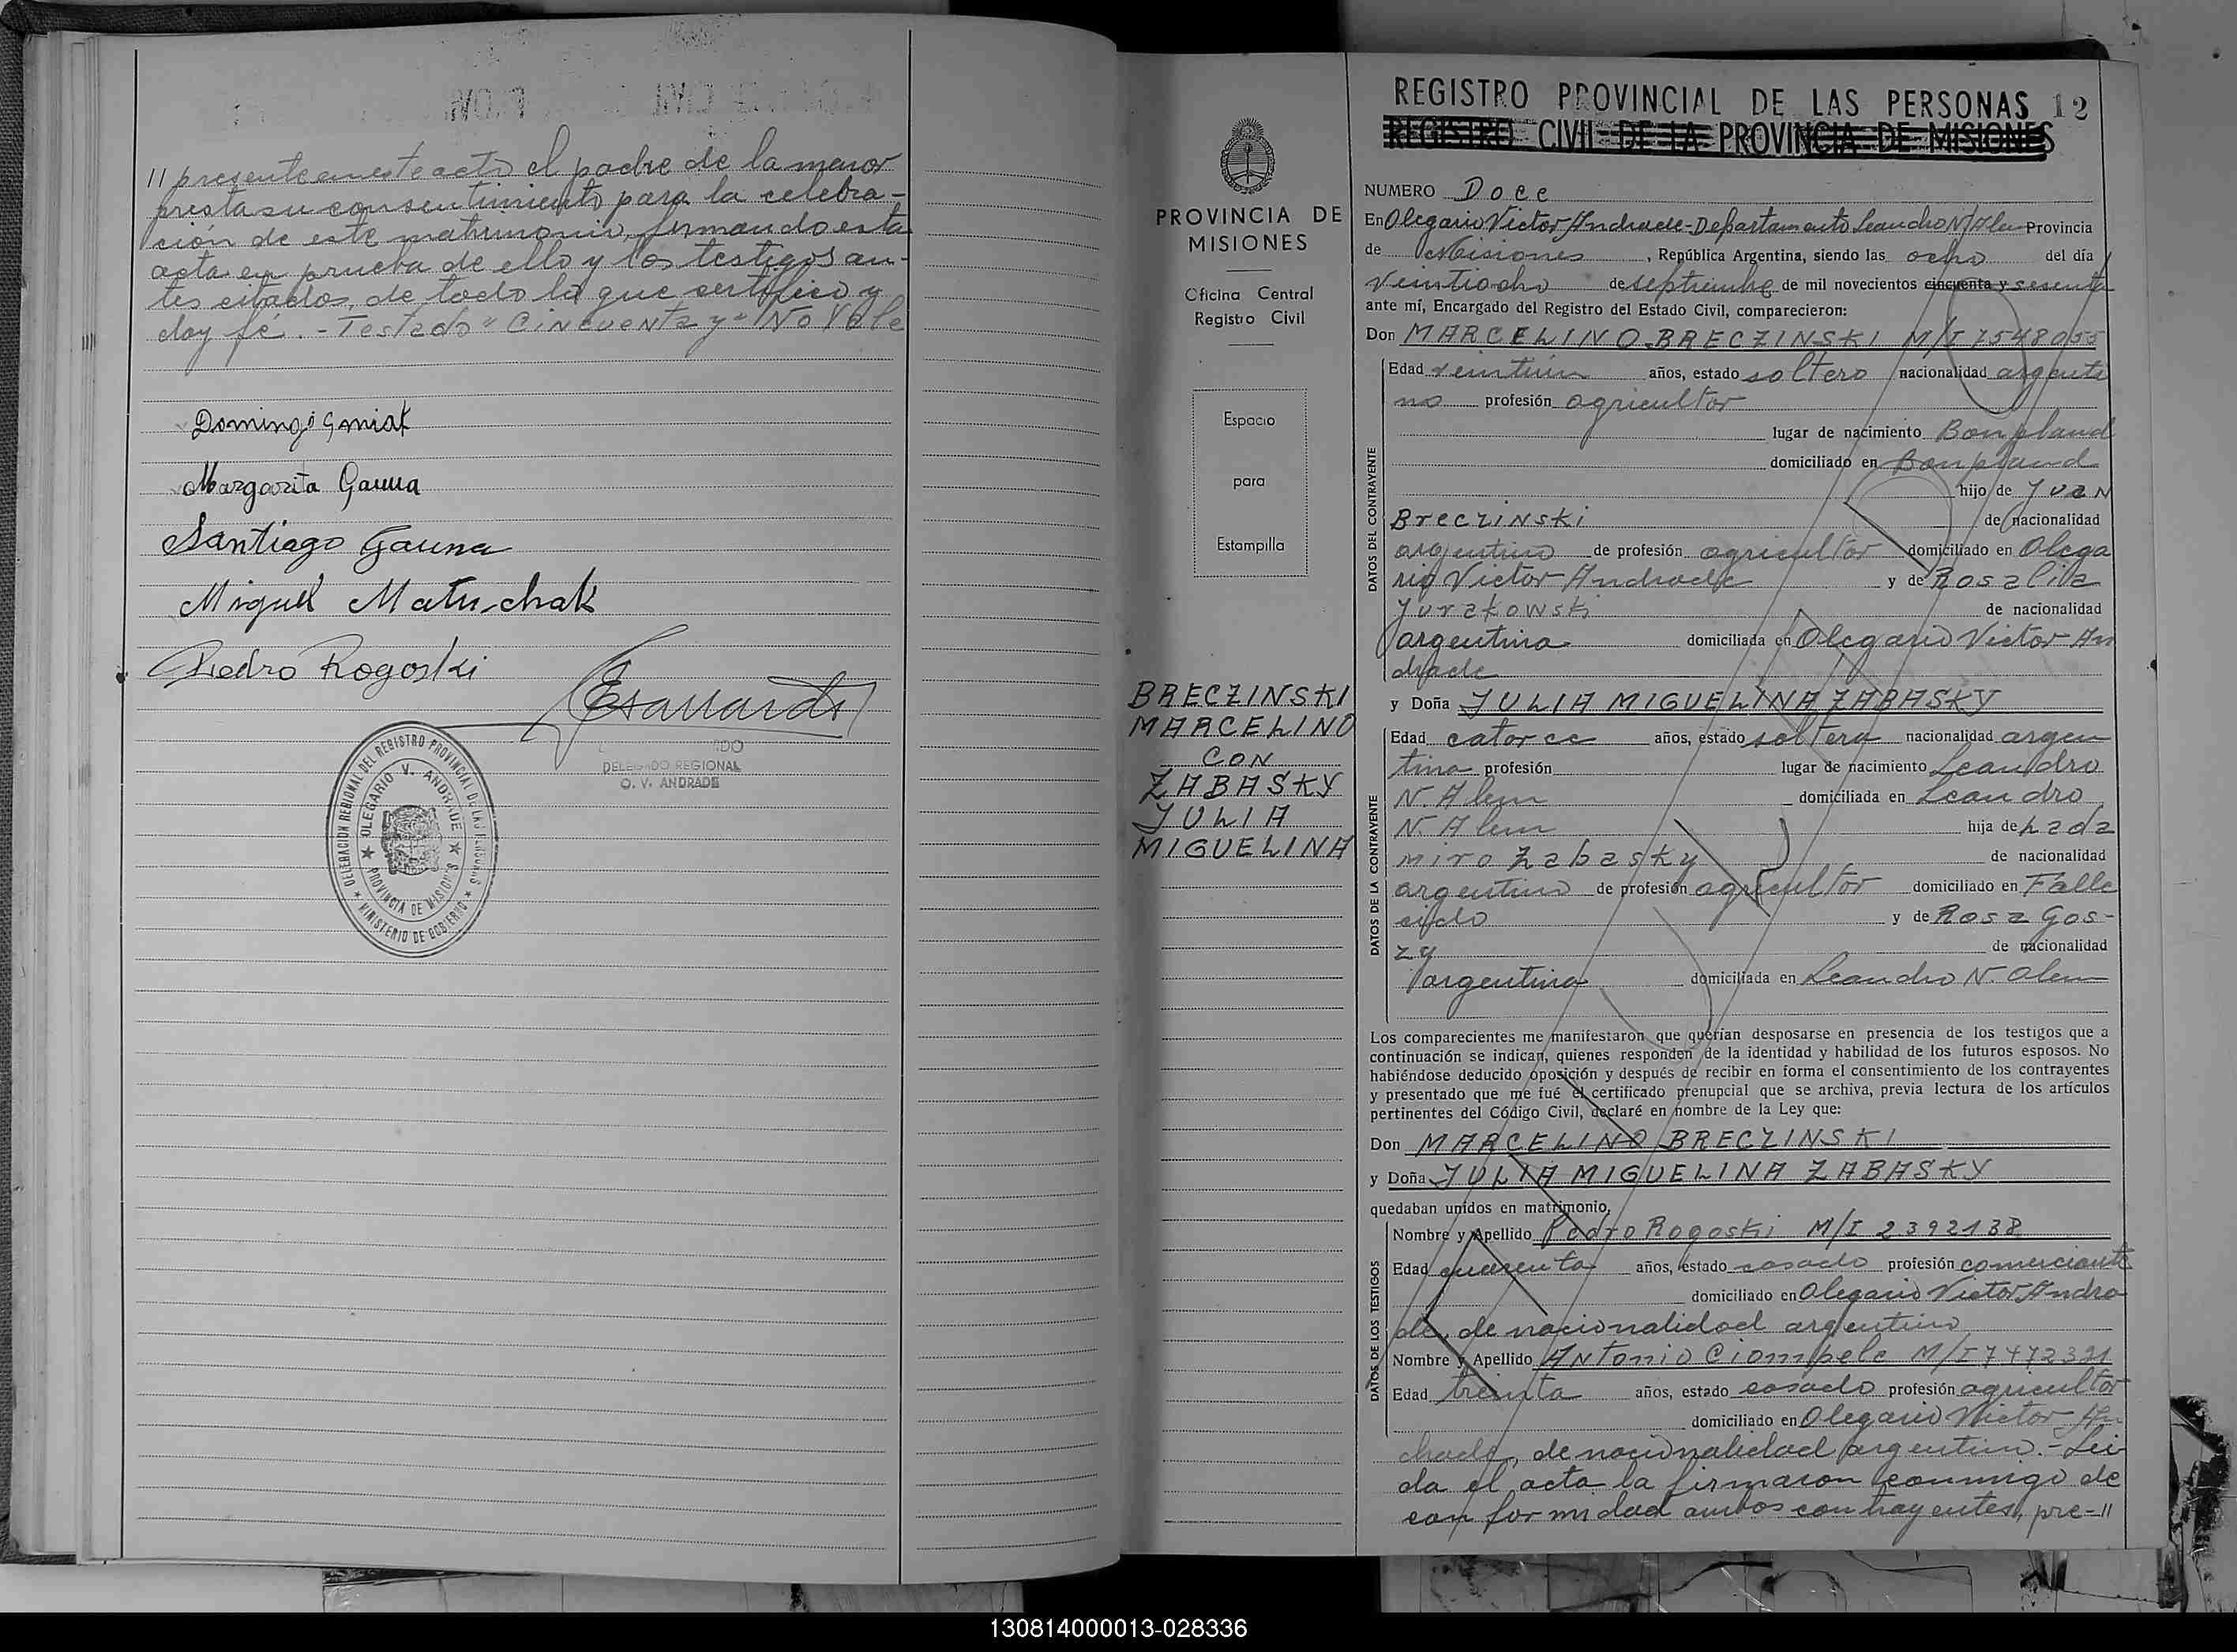 // presente en este acto el padre de la menor
presta su consentimiento para la celebra-
ción de este matrimonio, firmando esta
acta en prueba de ello y los testigos an-
tes citados, de todo lo que certifico y
doy fé. - Testado "Cincuenta y" No Vale
Domingo Gmiat
Margarita Gauna
Santiago Gauna
Miguel Matuchak
Pedro Rogoski
DELEGADO REGIONAL
O. V. ANDRADE
DELEGACION REGIONAL DEL REGISTRO PROVINCIAL DE LAS PERSONAS
OLEGARIO V. ANDRADE
PROVINCIA DE MISIONES
MINISTERIO DE GOBIERNO
PROVINCIA DE
MISIONES
Oficina Central
Registro Civil
Espacio
para
Estampilla
BRECZINSKI
MARCELINO
CON
ZABASKY
JULIA
MIGUELINA
REGISTRO PROVINCIAL DE LAS PERSONAS 12
REGISTRO CIVIL DE LA PROVINCIA DE MISIONES
NUMERO Doce
En Olegario Victor Andrade - Departamento Leandro N. Alem Provincia
de Misiones, República Argentina, siendo las ocho del día
veintiocho de septiembre de mil novecientos cincuenta y sesenta
ante mí, Encargado del Registro del Estado Civil, comparecieron:
Don MARCELINO BRECZINSKI M/I 7548055
DATOS DEL CONTRAYENTE
Edad veintiún años, estado soltero nacionalidad argenti
no profesión agricultor
lugar de nacimiento Bonpland
domiciliado en Bonpland
hijo de Juan
Breczinski de nacionalidad
argentino de profesión agricultor domiciliado en Olega
rio Victor Andrade y de Rosalia
Jurakowski de nacionalidad
argentina domiciliada en Olegario Victor An
drade
y Doña JULIA MIGUELINA ZABASKY
DATOS DE LA CONTRAYENTE
Edad catorce años, estado soltera nacionalidad argen
tina profesión lugar de nacimiento Leandro
N. Alem domiciliada en Leandro
N. Alem hija de Lada
miro Zabasky de nacionalidad
argentino de profesión agricultor domiciliado en Falle
cido y de Rosa Gos-
zy de nacionalidad
argentina domiciliada en Leandro N. Alem
Los comparecientes me manifestaron que querían desposarse en presencia de los testigos que a
continuación se indican, quienes responden de la identidad y habilidad de los futuros esposos. No
habiéndose deducido oposición y después de recibir en forma el consentimiento de los contrayentes
y presentado que me fué el certificado prenupcial que se archiva, previa lectura de los artículos
pertinentes del Código Civil, declaré en nombre de la Ley que:
Don MARCELINO BRECZINSKI
y Doña JULIA MIGUELINA ZABASKY
quedaban unidos en matrimonio,
DATOS DE LOS TESTIGOS
Nombre y Apellido Pedro Rogoski M/I 2392138
Edad cuarenta años, estado casado profesión comerciante
domiciliado en Olegario Victor Andra
de, de nacionalidad argentino
Nombre y Apellido Antonio Ciompele M/I 7472391
Edad treinta años, estado casado profesión agricultor
domiciliado en Olegario Victor An
drade, de nacionalidad argentino. - Lei
da el acta la firmaron conmigo de
conformidad ambos contrayentes, pre-//
130814000013-028336